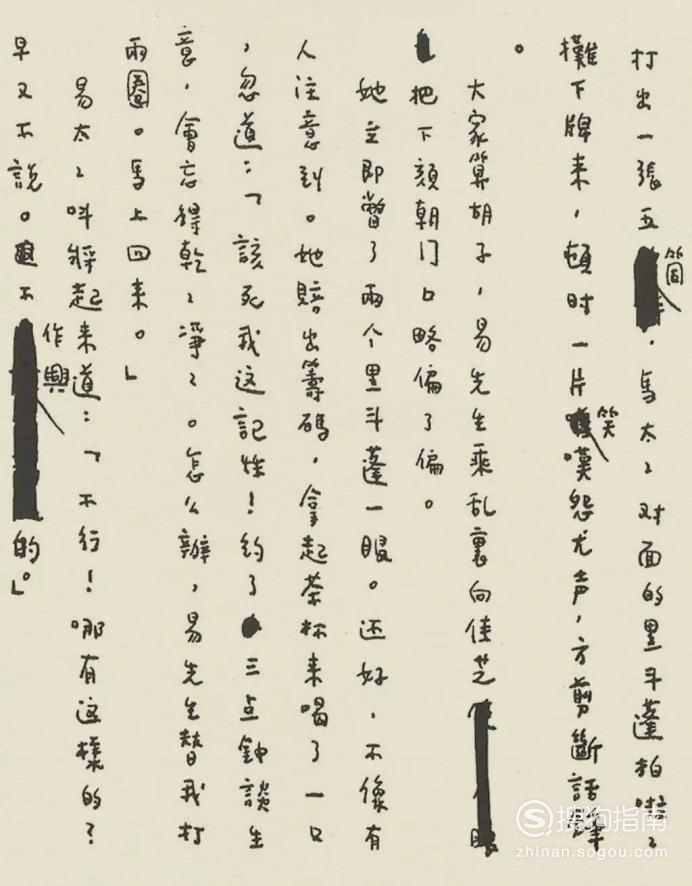 打出一張五筒,馬太〻对面的黑斗蓬拍啦〻
攤下牌来,頓时一片笑嘆怨尤声,方剪斷話鋒
。
大家算胡子,易先生乘乱裏向佳芝
把下頦朝门口略偏了偏。
她立即瞥了兩个黑斗蓬一眼。还好,不像有
人注意到。她賠出籌碼,拿起茶杯来喝了一口
,忽道:「該死我这記性!約了三点鐘談生
意,會忘得乾〻淨〻。怎么辦,易先生替我打
兩圈。馬上回来。」
易太〻叫將起来道:「不行!哪有这樣的?
早又不說。不作興的。」
搜狗指南
zhinan.sogou.com